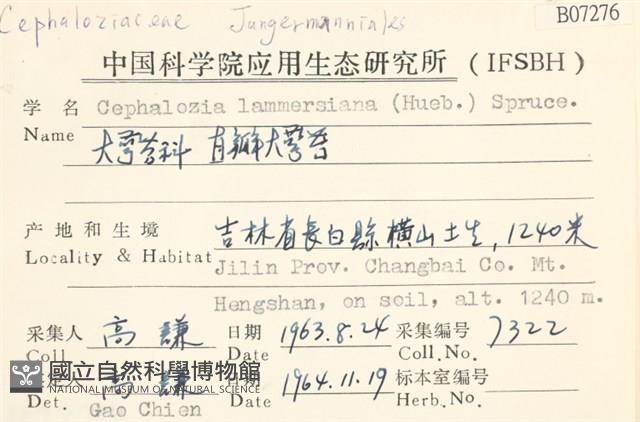 Cephaloziaceae Jungermanniales
B07276
中国科学院应用生态研究所 (IFSBH)
学名 Cephalozia lammersiana (Hueb.) Spruce.
Name 大萼苔科
产地和生境 吉林省長白縣橫山土生, 1240米
Locality & Habitat Jilin Prov. Changbai Co. Mt.
Hengshan, on soil, alt. 1240 m.
采集人 高謙 日期 1963.8.24 采集编号 7322
Coll. Date Coll.No.
國立自然科學博物館
NATIONAL MUSEUM OF NATURAL SCIENCE
高謙 日期 1964.11.19 标本室编号
Det. Gao Chien Date Herb.No.